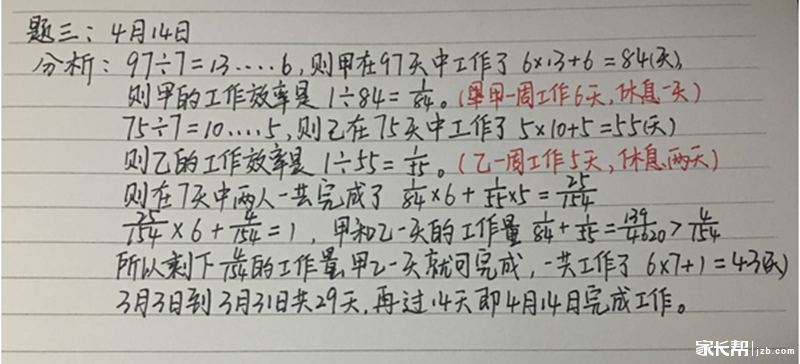 题三: 4月14日
分析: 97÷7=13....6, 则甲在97天中工作了 6×13+6=84(天),
则甲的工作效率是 1÷84=1/84。(甲一周工作6天, 休息一天)
75÷7=10....5, 则乙在75天中工作了 5×10+5=55(天)
则乙的工作效率是 1÷55=1/55。(乙一周工作5天, 休息两天)
则在7天中两人一共完成了 1/84×6+1/55×5=25/154
25/154×6+4/154=1, 甲和乙一天的工作量 1/84+1/55=139/4620>4/154
所以剩下4/154的工作量, 甲乙一天就可完成, 一共工作了 6×7+1=43(天)
3月3日到3月31日共29天, 再过14天即4月14日完成工作。
家长帮 jzb.com